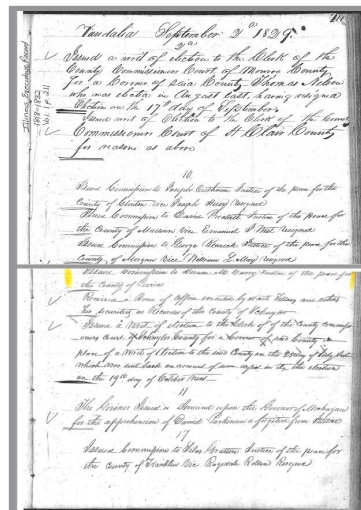 Vandalia September 2d 1829.
2d
Issued a writ of election to the Clerk of the
County Commissioners Court of Monroe County
for a Coroner of said County Thomas Nelson
who was elected in August last, having resigned
Election on the 17th day of September.
Issued writ of Election to the Clerk of the County
Commissioners Court of St Clair County
for reasons as above
Illinois Executive Record
1818-1832
Vol. 1 p. 211
10
Issued Commission to Joseph Justice of the peace for the
County of Clinton vice Joseph resigned
Issued Commission to David Justice of the peace for
the County of Macoupin vice Emanuel P West resigned
Issued Commission to George Justice of the peace for the
County of Morgan vice William L. May resigned
Issued Commission to Justice of the peace for
the County of
Received a Bond of office executed by Hart Fellows and
his securities as Recorder of the County of Schuyler
Issued a Writ of election to the Clerk of the County commissi
oners Court of Schuyler County for a Coroner of said County in
place of a Writ of Election to the said County on the
which was sent back on account of the election
on the 19th day of October next.
11
The Governor Issued a Demand upon the Governor of Michigan
for the apprehension of Daniel Parkinson a fugitive from Justice
17
Issued Commission to Silas Justice of the peace for
the County of Franklin vice resigned